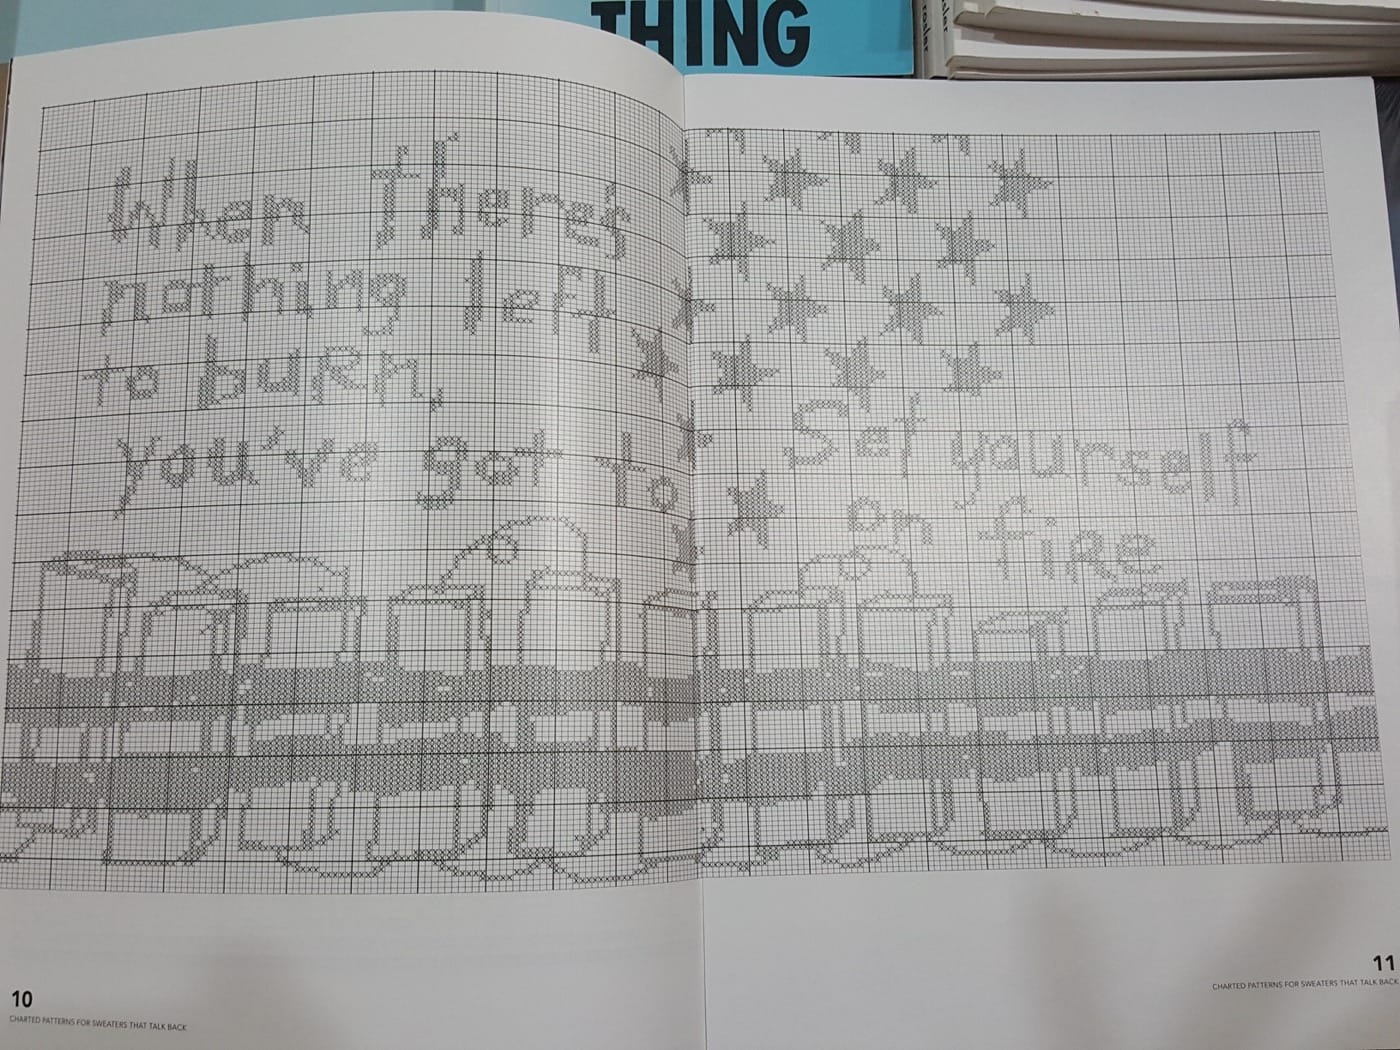 THING
When there's
nothing left
to buRn,
you've got to
Set yourself
on fiRe
10
CHARTED PATTERNS FOR SWEATERS THAT TALK BACK
11
CHARTED PATTERNS FOR SWEATERS THAT TALK BACK